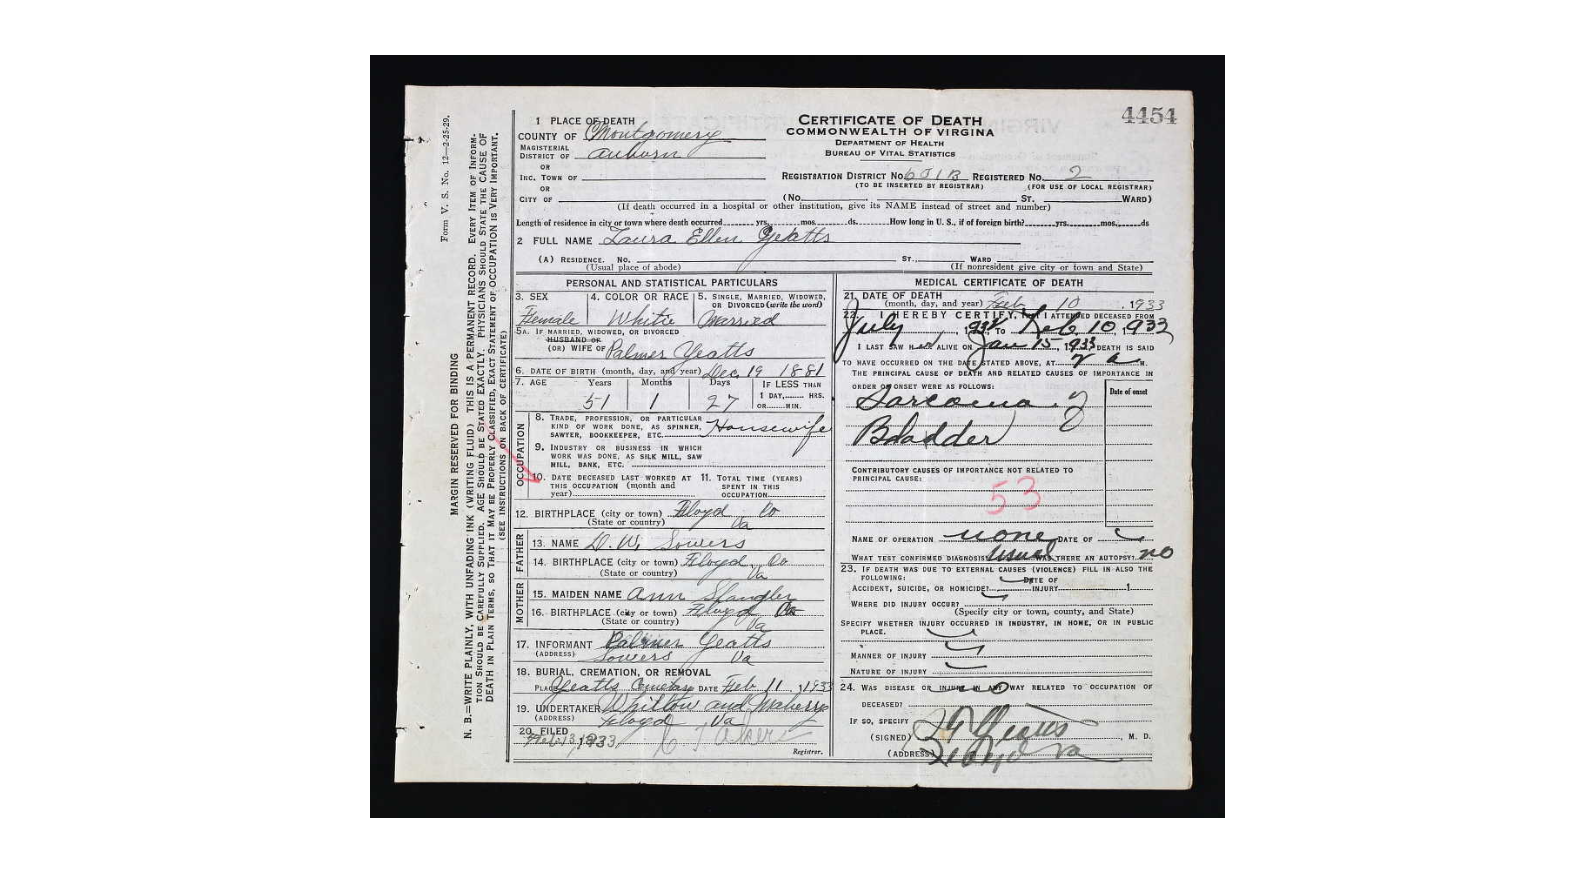 4454
Form V. S. No. 12—2-25-29.
MARGIN RESERVED FOR BINDING
N. B.—WRITE PLAINLY, WITH UNFADING INK (WRITING FLUID) THIS IS A PERMANENT RECORD. EVERY ITEM OF INFORM-
TION SHOULD BE CAREFULLY SUPPLIED. AGE SHOULD BE STATED EXACTLY. PHYSICIANS SHOULD STATE THE CAUSE OF
DEATH IN PLAIN TERMS, SO THAT IT MAY BE PROPERLY CLASSIFIED. EXACT STATEMENT OF OCCUPATION IS VERY IMPORTANT.
(SEE INSTRUCTIONS ON BACK OF CERTIFICATE)
CERTIFICATE OF DEATH
COMMONWEALTH OF VIRGINIA
DEPARTMENT OF HEALTH
BUREAU OF VITAL STATISTICS
1 PLACE OF DEATH
COUNTY OF Montgomery
MAGISTERIAL
DISTRICT OF Auburn
OR
INC. TOWN OF
OR
CITY OF
REGISTRATION DISTRICT No. 601B REGISTERED NO. 2
(TO BE INSERTED BY REGISTRAR) (FOR USE OF LOCAL REGISTRAR)
(No. ST. WARD)
(If death occurred in a hospital or other institution, give its NAME instead of street and number)
Length of residence in city or town where death occurred yrs. mos. ds. How long in U. S., if of foreign birth? yrs. mos. ds
2 FULL NAME Laura Ellen Yeatts
(A) RESIDENCE. NO. ST., WARD
(Usual place of abode) (If nonresident give city or town and State)
PERSONAL AND STATISTICAL PARTICULARS
3. SEX 4. COLOR OR RACE 5. SINGLE, MARRIED, WIDOWED,
OR DIVORCED (write the word)
Female White Married
5A. IF MARRIED, WIDOWED, OR DIVORCED
HUSBAND OF
(OR) WIFE OF Palmer Yeatts
6. DATE OF BIRTH (month, day, and year) Dec. 19 1881
7. AGE Years Months Days IF LESS THAN
1 DAY, HRS.
51 1 27 OR MIN.
OCCUPATION
8. TRADE, PROFESSION, OR PARTICULAR
KIND OF WORK DONE, AS SPINNER, Housewife
SAWYER, BOOKKEEPER, ETC.
9. INDUSTRY OR BUSINESS IN WHICH
WORK WAS DONE, AS SILK MILL, SAW
MILL, BANK, ETC.
10. DATE DECEASED LAST WORKED AT 11. TOTAL TIME (YEARS)
THIS OCCUPATION (month and SPENT IN THIS
year) OCCUPATION
12. BIRTHPLACE (city or town) Floyd Co
(State or country) Va
FATHER
13. NAME D. W. Sowers
14. BIRTHPLACE (city or town) Floyd Co
(State or country) Va
MOTHER
15. MAIDEN NAME Ann Slangler
16. BIRTHPLACE (city or town) Floyd Co
(State or country) Va
17. INFORMANT Palmer Yeatts
(ADDRESS) Sowers Va
18. BURIAL, CREMATION, OR REMOVAL
PLACE Yeatts Cemetery DATE Feb 11, 1933
19. UNDERTAKER Whitlow and Maberry
(ADDRESS) Floyd Va
20. FILED
Feb 13, 1933
Registrar.
MEDICAL CERTIFICATE OF DEATH
21. DATE OF DEATH
(month, day, and year) Feb 10 1933
22. I HEREBY CERTIFY, THAT I ATTENDED DECEASED FROM
July , TO Feb 10, 1933
I LAST SAW HER ALIVE ON Jan 15, 1933 DEATH IS SAID
TO HAVE OCCURRED ON THE DATE STATED ABOVE, AT 7 a M.
THE PRINCIPAL CAUSE OF DEATH AND RELATED CAUSES OF IMPORTANCE IN
ORDER OF ONSET WERE AS FOLLOWS: Date of onset
Sarcoma of
Bladder
CONTRIBUTORY CAUSES OF IMPORTANCE NOT RELATED TO
PRINCIPAL CAUSE:
53
NAME OF OPERATION none DATE OF
WHAT TEST CONFIRMED DIAGNOSIS? Usual WAS THERE AN AUTOPSY? no
23. IF DEATH WAS DUE TO EXTERNAL CAUSES (VIOLENCE) FILL IN ALSO THE
FOLLOWING: DATE OF
ACCIDENT, SUICIDE, OR HOMICIDE? INJURY 1
WHERE DID INJURY OCCUR?
(Specify city or town, county, and State)
SPECIFY WHETHER INJURY OCCURRED IN INDUSTRY, IN HOME, OR IN PUBLIC
PLACE.
MANNER OF INJURY
NATURE OF INJURY
24. WAS DISEASE OR INJURY IN ANY WAY RELATED TO OCCUPATION OF
DECEASED? no
IF SO, SPECIFY
(SIGNED) Yeatts , M. D.
(ADDRESS) Floyd Va